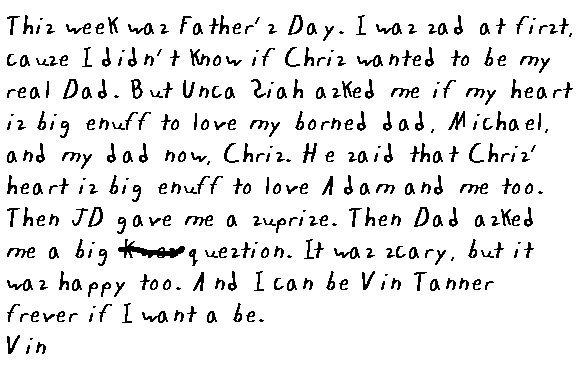 This week was Father's Day. I was sad at first,
cause I didn't know if Chris wanted to be my
real Dad. But Unca Siah asked me if my heart
is big enuff to love my borned dad, Michael,
and my dad now, Chris. He said that Chris'
heart is big enuff to love Adam and me too.
Then JD gave me a suprise. Then Dad asked
me a big question. It was scary, but it
was happy too. And I can be Vin Tanner
frever if I want a be.
Vin